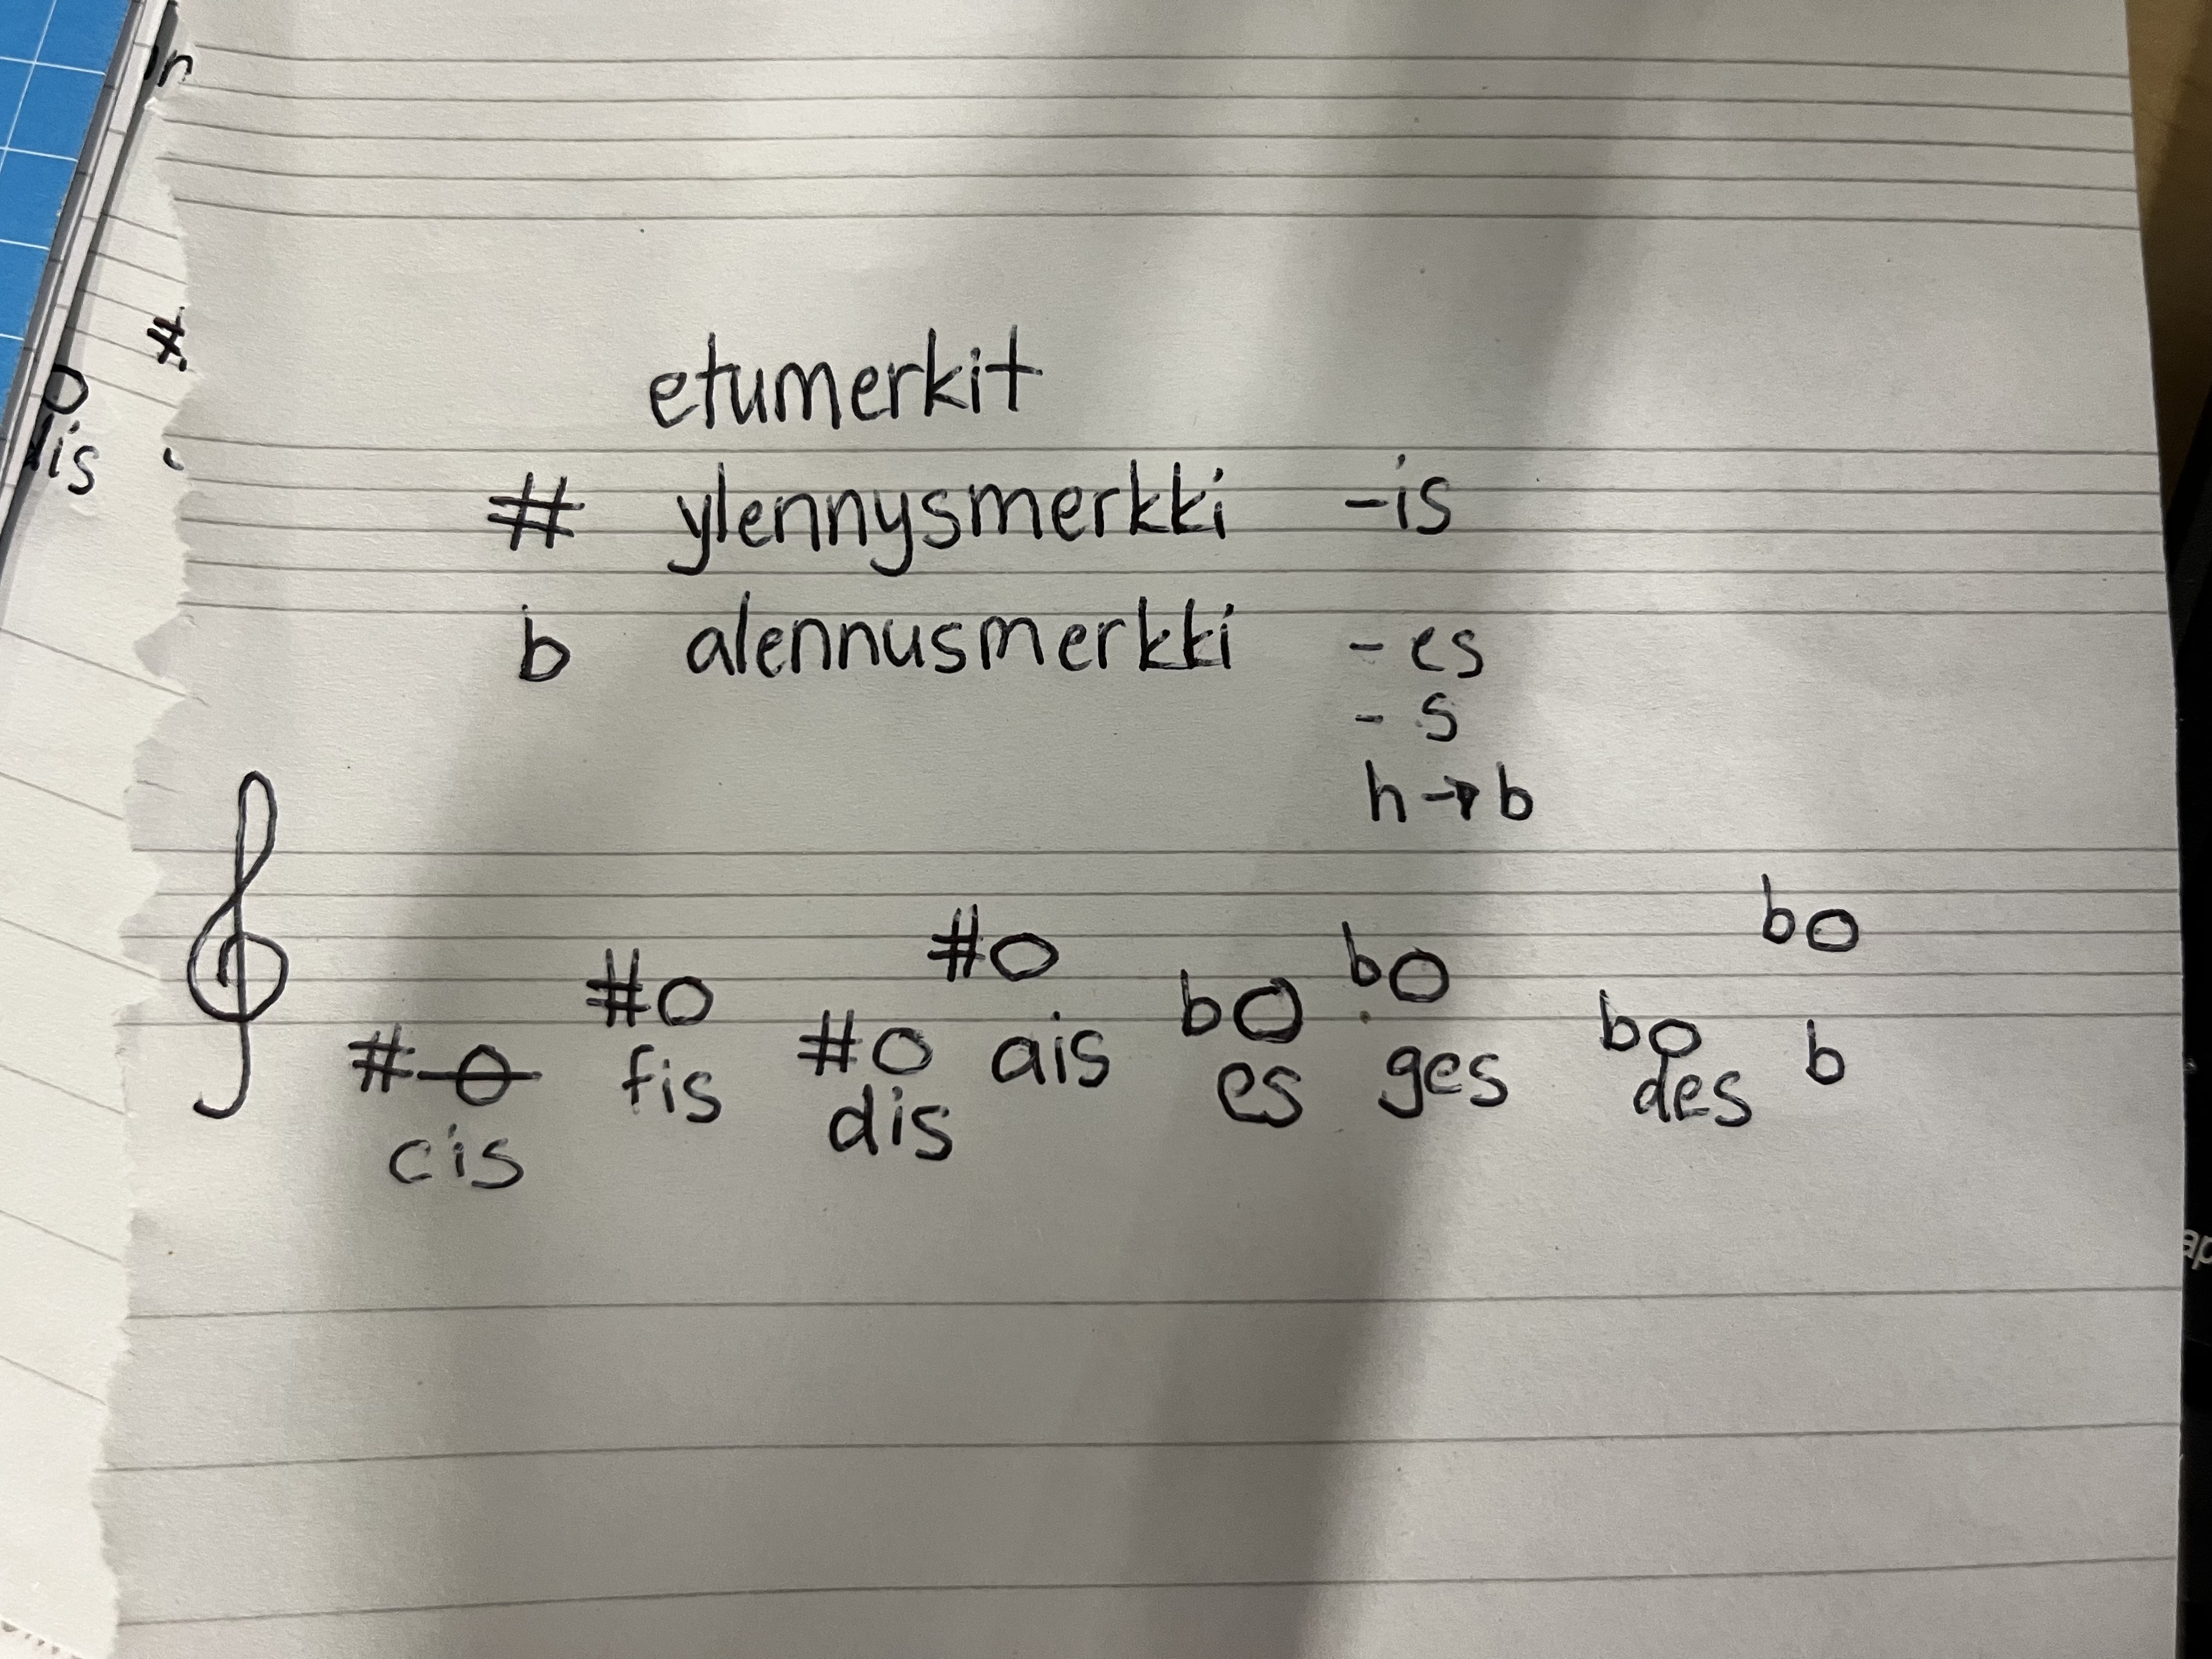 etumerkit
# ylennysmerkki -is
b alennusmerkki - es
- s
h → b
# # # b b b b
cis fis dis ais es ges des b
dis